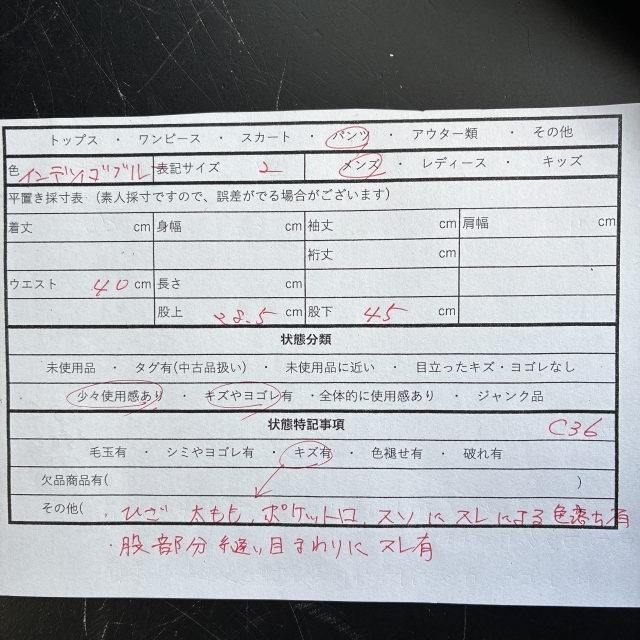 トップス ・ ワンピース ・ スカート ・ パンツ ・ アウター類 ・ その他
色 インデツゴブル 表記サイズ 2 メンズ ・ レディース ・ キッズ
平置き採寸表 (素人採寸ですので、誤差がでる場合がございます)
着丈 cm 身幅 cm 袖丈 cm 肩幅 cm
裄丈 cm
ウエスト 40 cm 長さ cm
股上 28.5 cm 股下 45 cm
状態分類
未使用品 ・ タグ有(中古品扱い) ・ 未使用品に近い ・ 目立ったキズ・ヨゴレなし
・ 少々使用感あり ・ キズやヨゴレ有 ・全体的に使用感あり ・ ジャンク品
状態特記事項 C36
毛玉有 ・ シミやヨゴレ有 ・ キズ有 ・ 色褪せ有 ・ 破れ有
欠品商品有( )
その他( ・ひざ 太もも、ポケット口、スソにスレによる色落ち有
・股部分縫い目まわりにスレ有